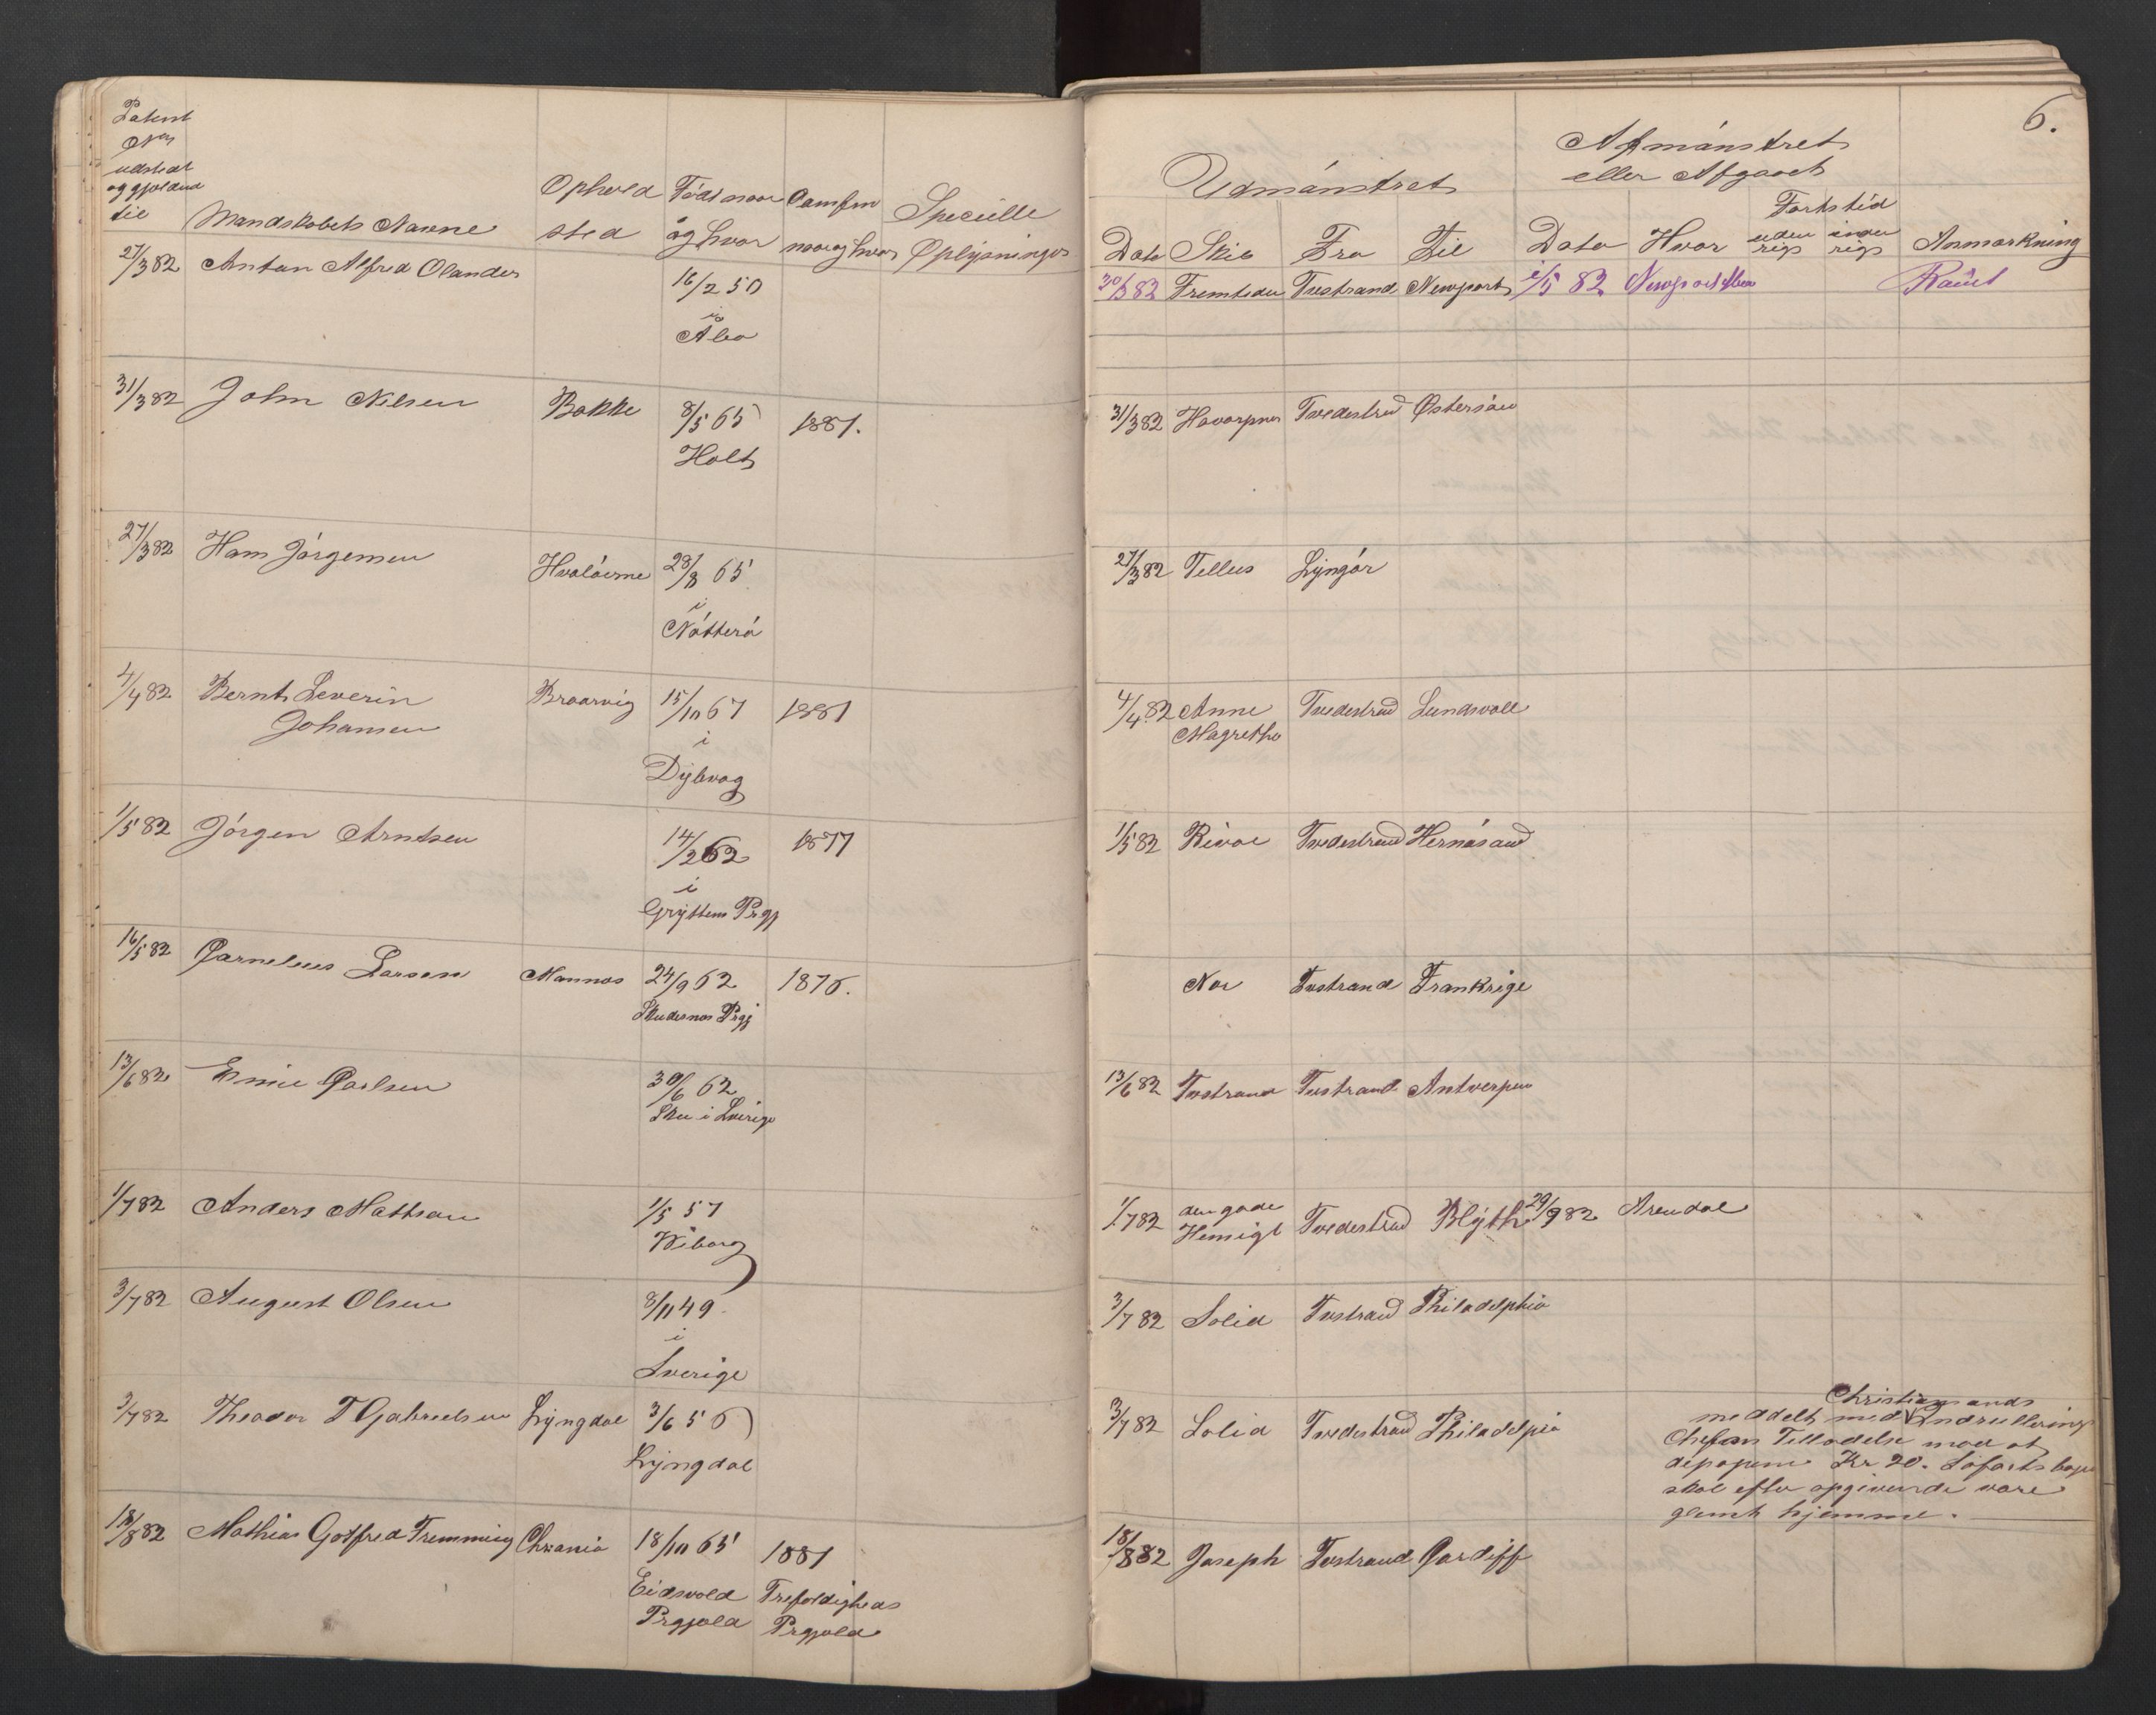 Patent
udstedt
og gjeldend
til
Mandskabets Navne
Ophold
sted
Född naar
og hvor
Comfirm
naar og hvor
Specielle
Oplysninger
27/3 82 Antan Alfred Olander 16/2 50
i
Åbo
31/3 82 John Nilsen Bakke 8/5 65 1881.
Holt
27/3 82 Hans Jórgensen Hvalóerne 28/8 65
i
Nótteró
4/4 82 Bernt Severin Braarvig 15/10 67 1881
Johansen i
Dybvag
1/5 82 Jórgen Arntsen 14/2 62 1877
i
Gryttens Prgj
16/5 82 Cornelius Larsen Mannes 24/9 62 1876.
Skudesnes Prgj
13/6 82 Carlsen 30/6 62
i Sverige
1/7 82 Anders Mattson 1/5 57
Wiborg
3/7 82 August Olsen 8/11 49.
i
Sverige
3/7 82 Theodor T Gabrielsen Lyngdal 3/6 56
Lyngdal
18/8 82 Mathias Gotfred Fremming Chrania 18/10 65 1881
Eidsvold Trefoldigheds
Prgjæld Prgjæld
6.
Udmónstret
Afmónstret
eller Afgaaet
Fartstid
Dato Skib Fra Til Dato Hvor uden rigs inden rigs Anmærkning
30/3 82 Fremtiden Tvestrand Newport 2/5 82 Newport Rømt
31/3 82 Tvedestrnd Østersöen
27/3 82 Tellus Lyngór
4/4 82 Anne Tvedestrnd Sundsvall
Magrethe
1/5 82 Rival Tvedestrand Hernósand
Nor Tvestrand Frankrige
13/6 82 Tvestrand Tvestrand Antwerpen
1/7 82 den gode Tvedestrand Blyth 29/9 82 Arendal
Hensigt
3/7 82 Solid Tvstrand Philadelphia
3/7 82 Solid Tvedestrand Philadelpia
Christiansands
meddelt med Indrullering
Chefens Tilladelse mod at
deponere Kr 20. Søfartsbogen
skal efter opgivende være
glemt hjemme.
18/8 82 Joseph Tvstrand Cardiff